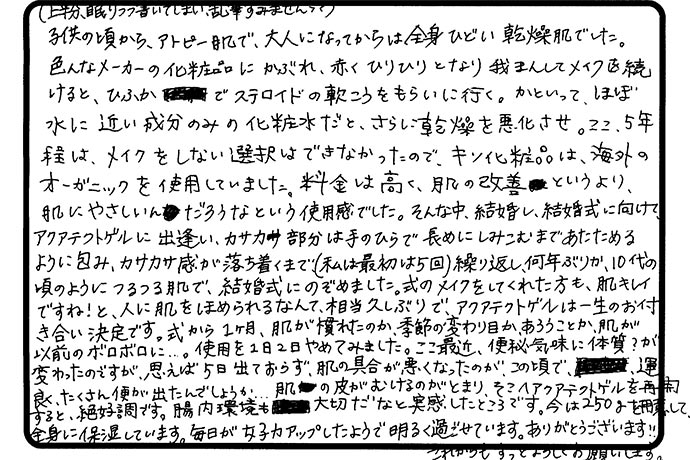 (上半分、眠りつつ書いてしまい、乱筆すみません
子供の頃から、アトピー肌で、大人になってからは全身ひどい乾燥肌でした。
色んなメーカーの化粧品にかぶれ、赤くひりひりとなり我まんしてメイクを続
けると、ひふか でステロイドの軟こうをもらいに行く。かといって、ほぼ
水に近い成分のみの化粧水だと、さらに乾燥を悪化させ。ここ、5年
程は、メイクをしない選択はできなかったので、キソ化粧品は、海外の
オーガニックを使用していました。料金は高く、肌の改善 というより、
肌にやさしいん だろうなという使用感でした。そんな中、結婚し、結婚式に向けて、
アクアテクトゲルに出逢い、カサカサ部分は手のひらで長めにしみこむまであたためる
ように包み、カサカサ感が落ち着くまで(私は最初は5回)繰り返し、何年ぶりか、10代の
頃のようにつるつる肌で、結婚式にのぞめました。式のメイクをしてくれた方も、肌キレイ
ですね!と、人に肌をほめられるなんて、相当久しぶりで、アクアテクトゲルは一生のお付
き合い決定です。式から1ヶ月、肌が慣れたのか、季節の変わり目か、あろうことか、肌が
以前のボロボロに…。使用を1日2日やめてみました。ここ最近、便秘気味に体質?が
変わったのですが、思えば5日出ておらず、肌の具合が悪くなったのが、この頃で、 、運
良く、たくさん便が出たんでしょうか…肌 の皮がむけるのがとまり、そこへアクアテクトゲルを再開
すると、絶好調です。腸内環境も 大切だなと実感したところです。今は250gを用意して、
全身に保湿しています。毎日が女子力アップしたようで明るく過ごせています。ありがとうございます!!
これからもずっとよろしくお願いします。